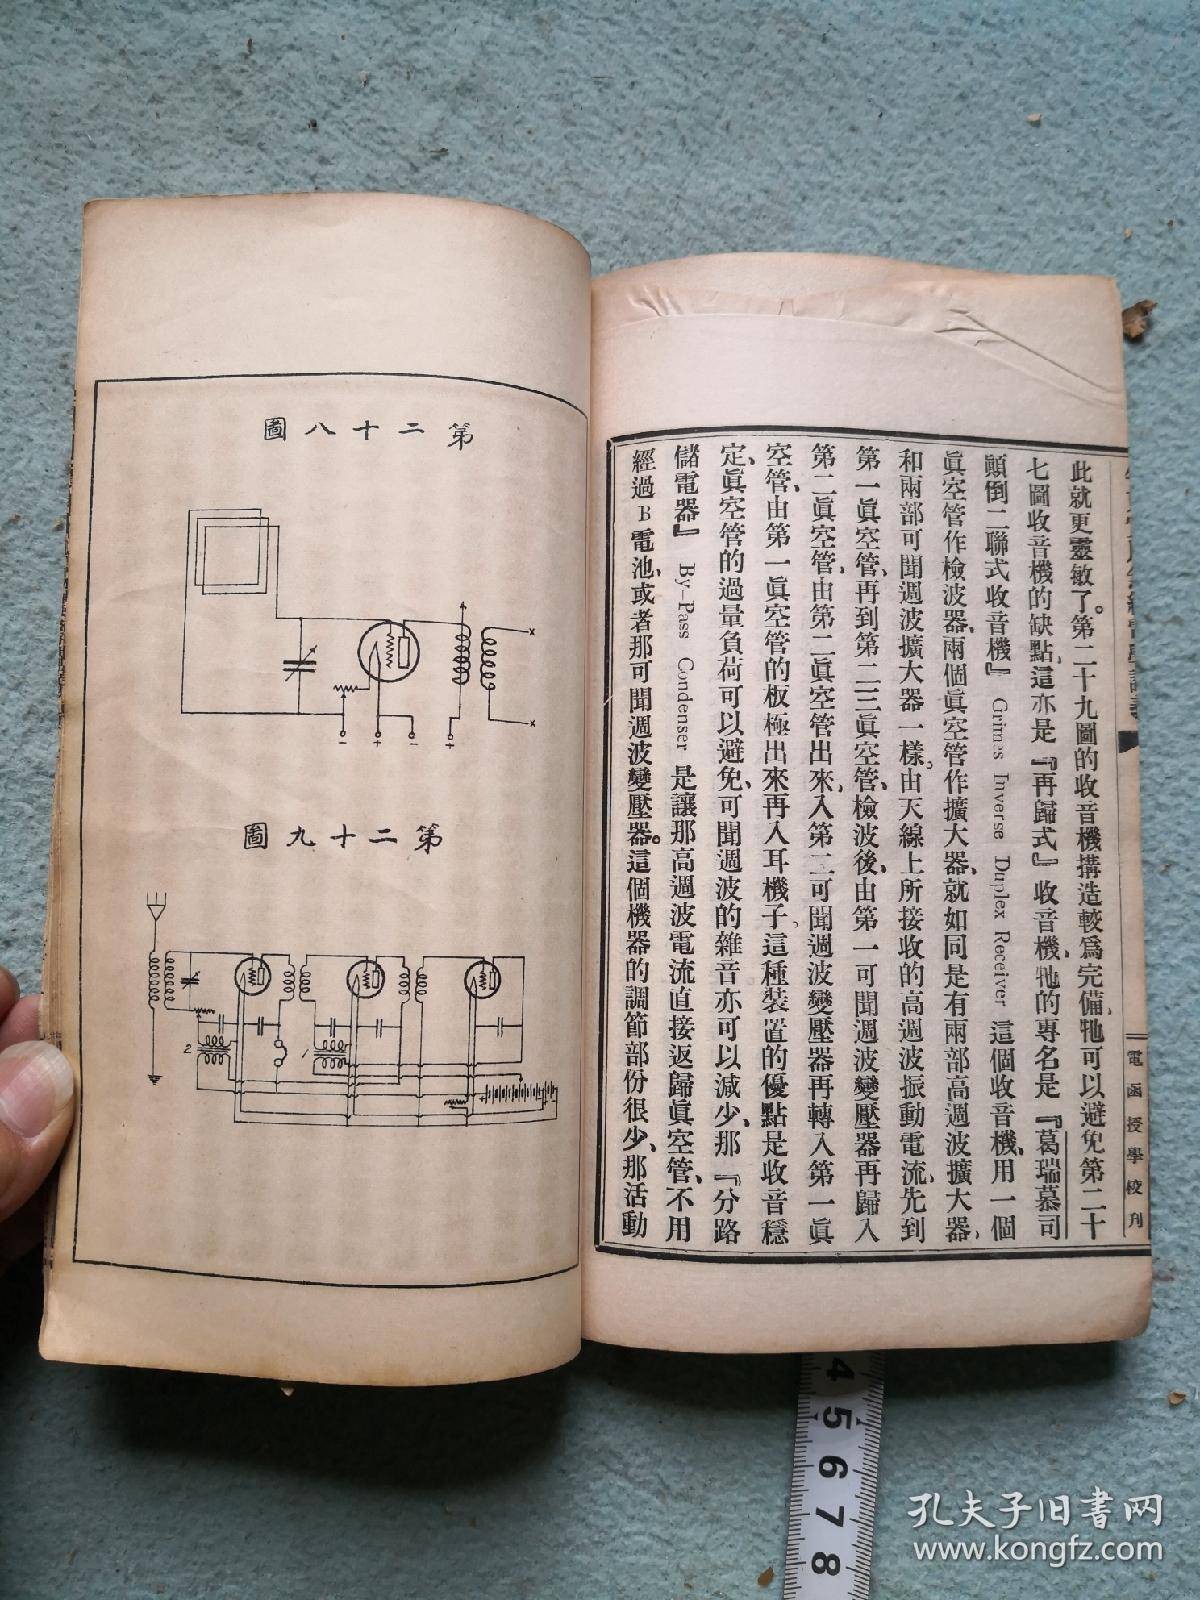 此就更靈敏了。第二十九圖的收音機搆造較爲完備、牠可以避免第二十
七圖收音機的缺點、這亦是『再歸式』收音機、牠的專名是『葛瑞慕司
顛倒二聯式收音機』 Grimes Inverse Duplex Receiver 這個收音機、用一個
眞空管作檢波器、兩個眞空管作擴大器、就如同是有兩部高週波擴大器、
和兩部可聞週波擴大器一樣。由天線上所接收的高週波振動電流、先到
第一眞空管、再到第二三眞空管、檢波後、由第一可聞週波變壓器再歸入
第二眞空管、由第二眞空管出來、入第二可聞週波變壓器再轉入第一眞
空管、由第一眞空管的板極出來再入耳機子。這種裝置的優點是收音穩
定、眞空管的過量負荷可以避免、可聞週波的雜音亦可以減少、那『分路
儲電器』 By-Pass Condenser 是讓那高週波電流直接返歸眞空管、不用
經過B電池、或者那可聞週波變壓器。這個機器的調節部份很少、那活動
電函授學校刊
第二十八圖
第二十九圖
2
1
4
5
6
7
8
孔夫子旧书网
www.kongfz.com